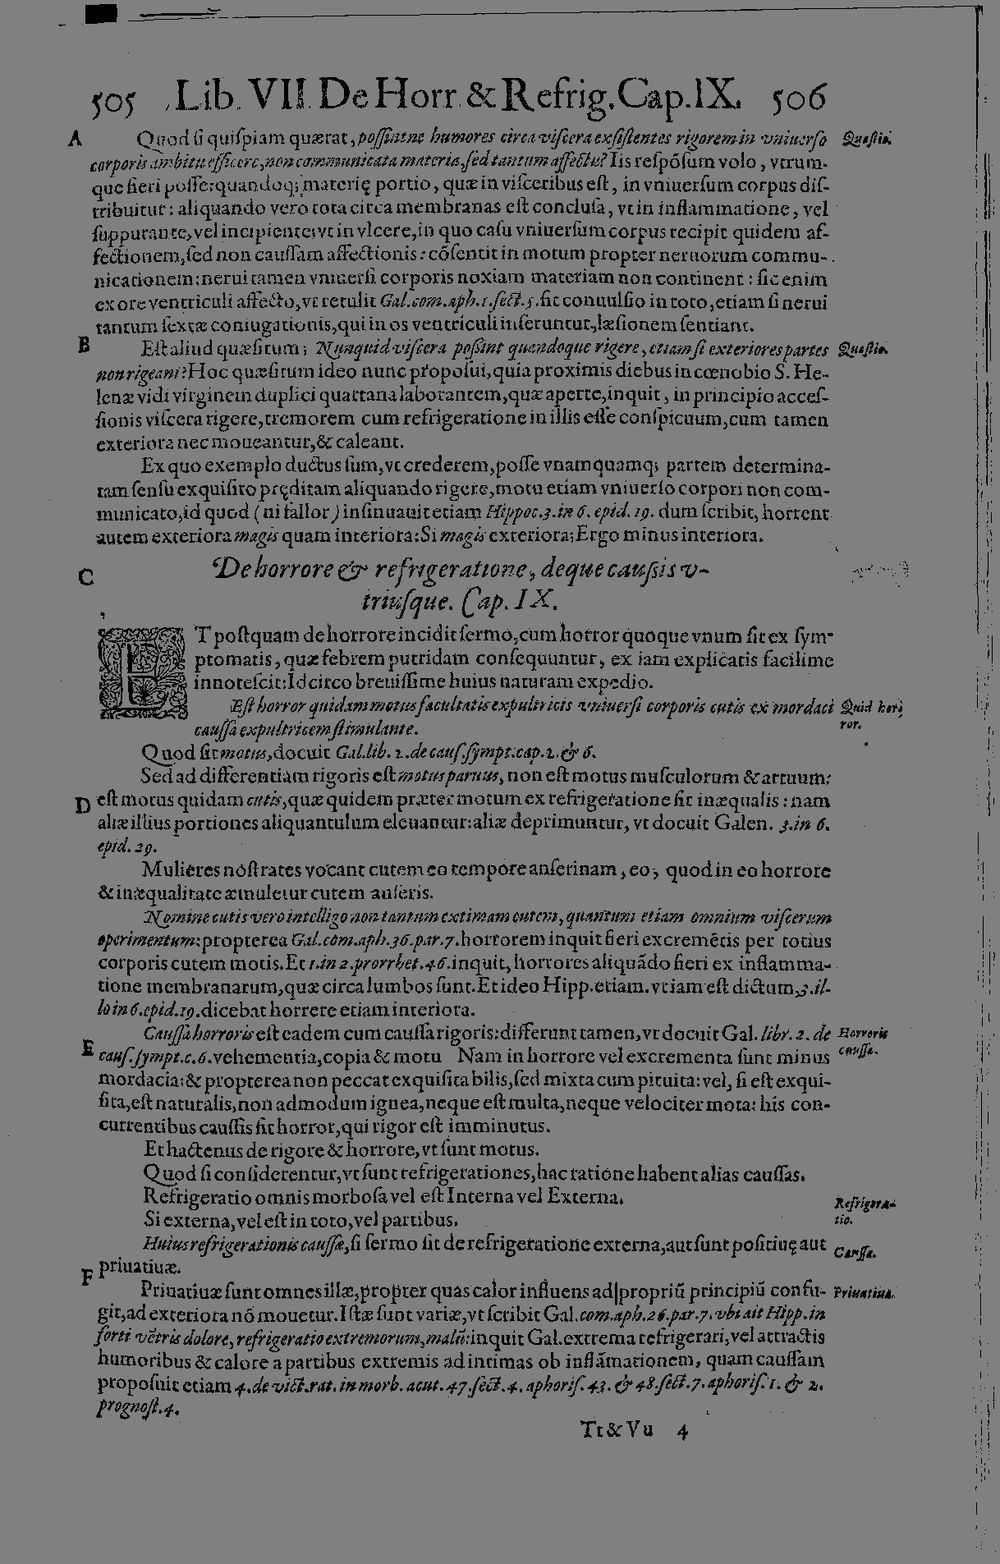 505 Lib. VII. De Horr. & Refrig. Cap. IX. 506
A Quod si quispiam quærat, possintne humores circa viscera exsistentes rigorem in vniuerso Quæstio.
corporis ambitu efficere, non communicata materia, sed tantum affectu? Iis respōsum volo, vtrum-
que fieri posse: quandoq; materię portio, quæ in visceribus est, in vniuersum corpus dis-
tribuitur: aliquando vero tota circa membranas est conclusa, vt in inflammatione, vel
suppurante, vel incipiente; vt in vlcere, in quo casu vniuersum corpus recipit quidem af-
fectionem, sed non caussam affectionis: cōsentit in motum propter neruorum commu-
nicationem: nerui tamen vniuersi corporis noxiam materiam non continent: sic enim
ex ore ventriculi affecto, vt retulit Gal. com. aph. 1. sect. 5. fit conuulsio in toto, etiam si nerui
tantum sextæ coniugationis, qui in os ventriculi inseruntur, læsionem sentiant.
B Est aliud quæsitum; Nunquid viscera possint quandoque rigere, etiam si exteriores partes Quæstio.
non rigeant? Hoc quæsitum ideo nunc proposui, quia proximis diebus in cœnobio S. He-
lenæ vidi virginem duplici quartana laborantem, quæ aperte, inquit, in principio acces-
sionis viscera rigere, tremorem cum refrigeratione in illis esse conspicuum, cum tamen
exteriora nec moueantur, & caleant.
Ex quo exemplo ductus sum, vt crederem, posse vnamquamq; partem determina-
tam sensu exquisito pręditam aliquando rigere, motu etiam vniuerso corpori non com-
municato, id quod (ni fallor) insinuauit etiam Hippoc. 3. in 6. epid. 19. dum scribit, horrent
autem exteriora magis quam interiora: Si magis exteriora; Ergo minus interiora.
C De horrore & refrigeratione, deque caussis v-
triusque. Cap. IX.
ET postquam de horrore incidit sermo, cum horror quoque vnum sit ex sym-
ptomatis, quæ febrem putridam consequuntur, ex iam explicatis facilime
innotescit: Idcirco breuissime huius naturam expedio.
Est horror quidam motus facultatis expultricis vniuersi corporis cutis ex mordaci Quid hor-
caussa expultricem stimulante. ror.
Quod sit motus, docuit Gal. lib. 2. de caus. sympt. cap. 2. & 6.
Sed ad differentiam rigoris est motus paruus, non est motus musculorum & artuum:
D est motus quidam cutis, quæ quidem præter motum ex refrigeratione fit inæqualis: nam
aliæ illius portiones aliquantulum eleuantur: aliæ deprimuntur, vt docuit Galen. 3. in 6.
epid. 29.
Mulieres nostrates vocant cutem eo tempore anserinam, eo, quod in eo horrore
& inæqualitate æmuletur cutem anseris.
Nomine cutis vero intelligo non tantum extimam cutem, quantum etiam omnium viscerum
operimentum: propterea Gal. com. aph. 36. par. 7. horrorem inquit fieri excremētis per totius
corporis cutem motis. Et 1. in 2. prorrhet. 46. inquit, horrores aliquādo fieri ex inflamma-
tione membranarum, quæ circa lumbos sunt. Et ideo Hipp. etiam. vt iam est dictum, 3. il-
lo in 6. epid. 19. dicebat horrere etiam interiora.
Caussa horroris est eadem cum caussa rigoris: differunt tamen, vt docuit Gal. libr. 2. de Horroris
E caus. sympt. c. 6. vehementia, copia & motu Nam in horrore vel excrementa sunt minus caussa.
mordacia: & propterea non peccat exquisita bilis, sed mixta cum pituita: vel, si est exqui-
sita, est naturalis, non admodum ignea, neque est multa, neque velociter mota: his con-
currentibus caussis fit horror, qui rigor est imminutus.
Et hactenus de rigore & horrore, vt sunt motus.
Quod si considerentur, vt sunt refrigerationes, hac ratione habent alias caussas.
Refrigeratio omnis morbosa vel est Interna vel Externa. Refrigera-
Si externa, vel est in toto, vel partibus. tio.
Huius refrigerationis caussæ, si sermo sit de refrigeratione externa, aut sunt positiuę aut Caussa.
priuatiuæ.
F Priuatiuæ sunt omnes illæ, propter quas calor influens ad propriū principiū confu- Priuatiua.
git, ad exteriora nō mouetur. Istæ sunt variæ, vt scribit Gal. com. aph. 26. par. 7. vbi ait Hipp. in
forti vētris dolore, refrigeratio extremorum, malū: inquit Gal. extrema refrigerari, vel attractis
humoribus & calore a partibus extremis ad intimas ob inflāmationem, quam caussam
proposuit etiam 4. de vict. rat. in morb. acut. 47. sect. 4. aphoris. 43. & 48. sect. 7. aphoris. 1. & 2.
prognost. 4.
Tt & Vu 4